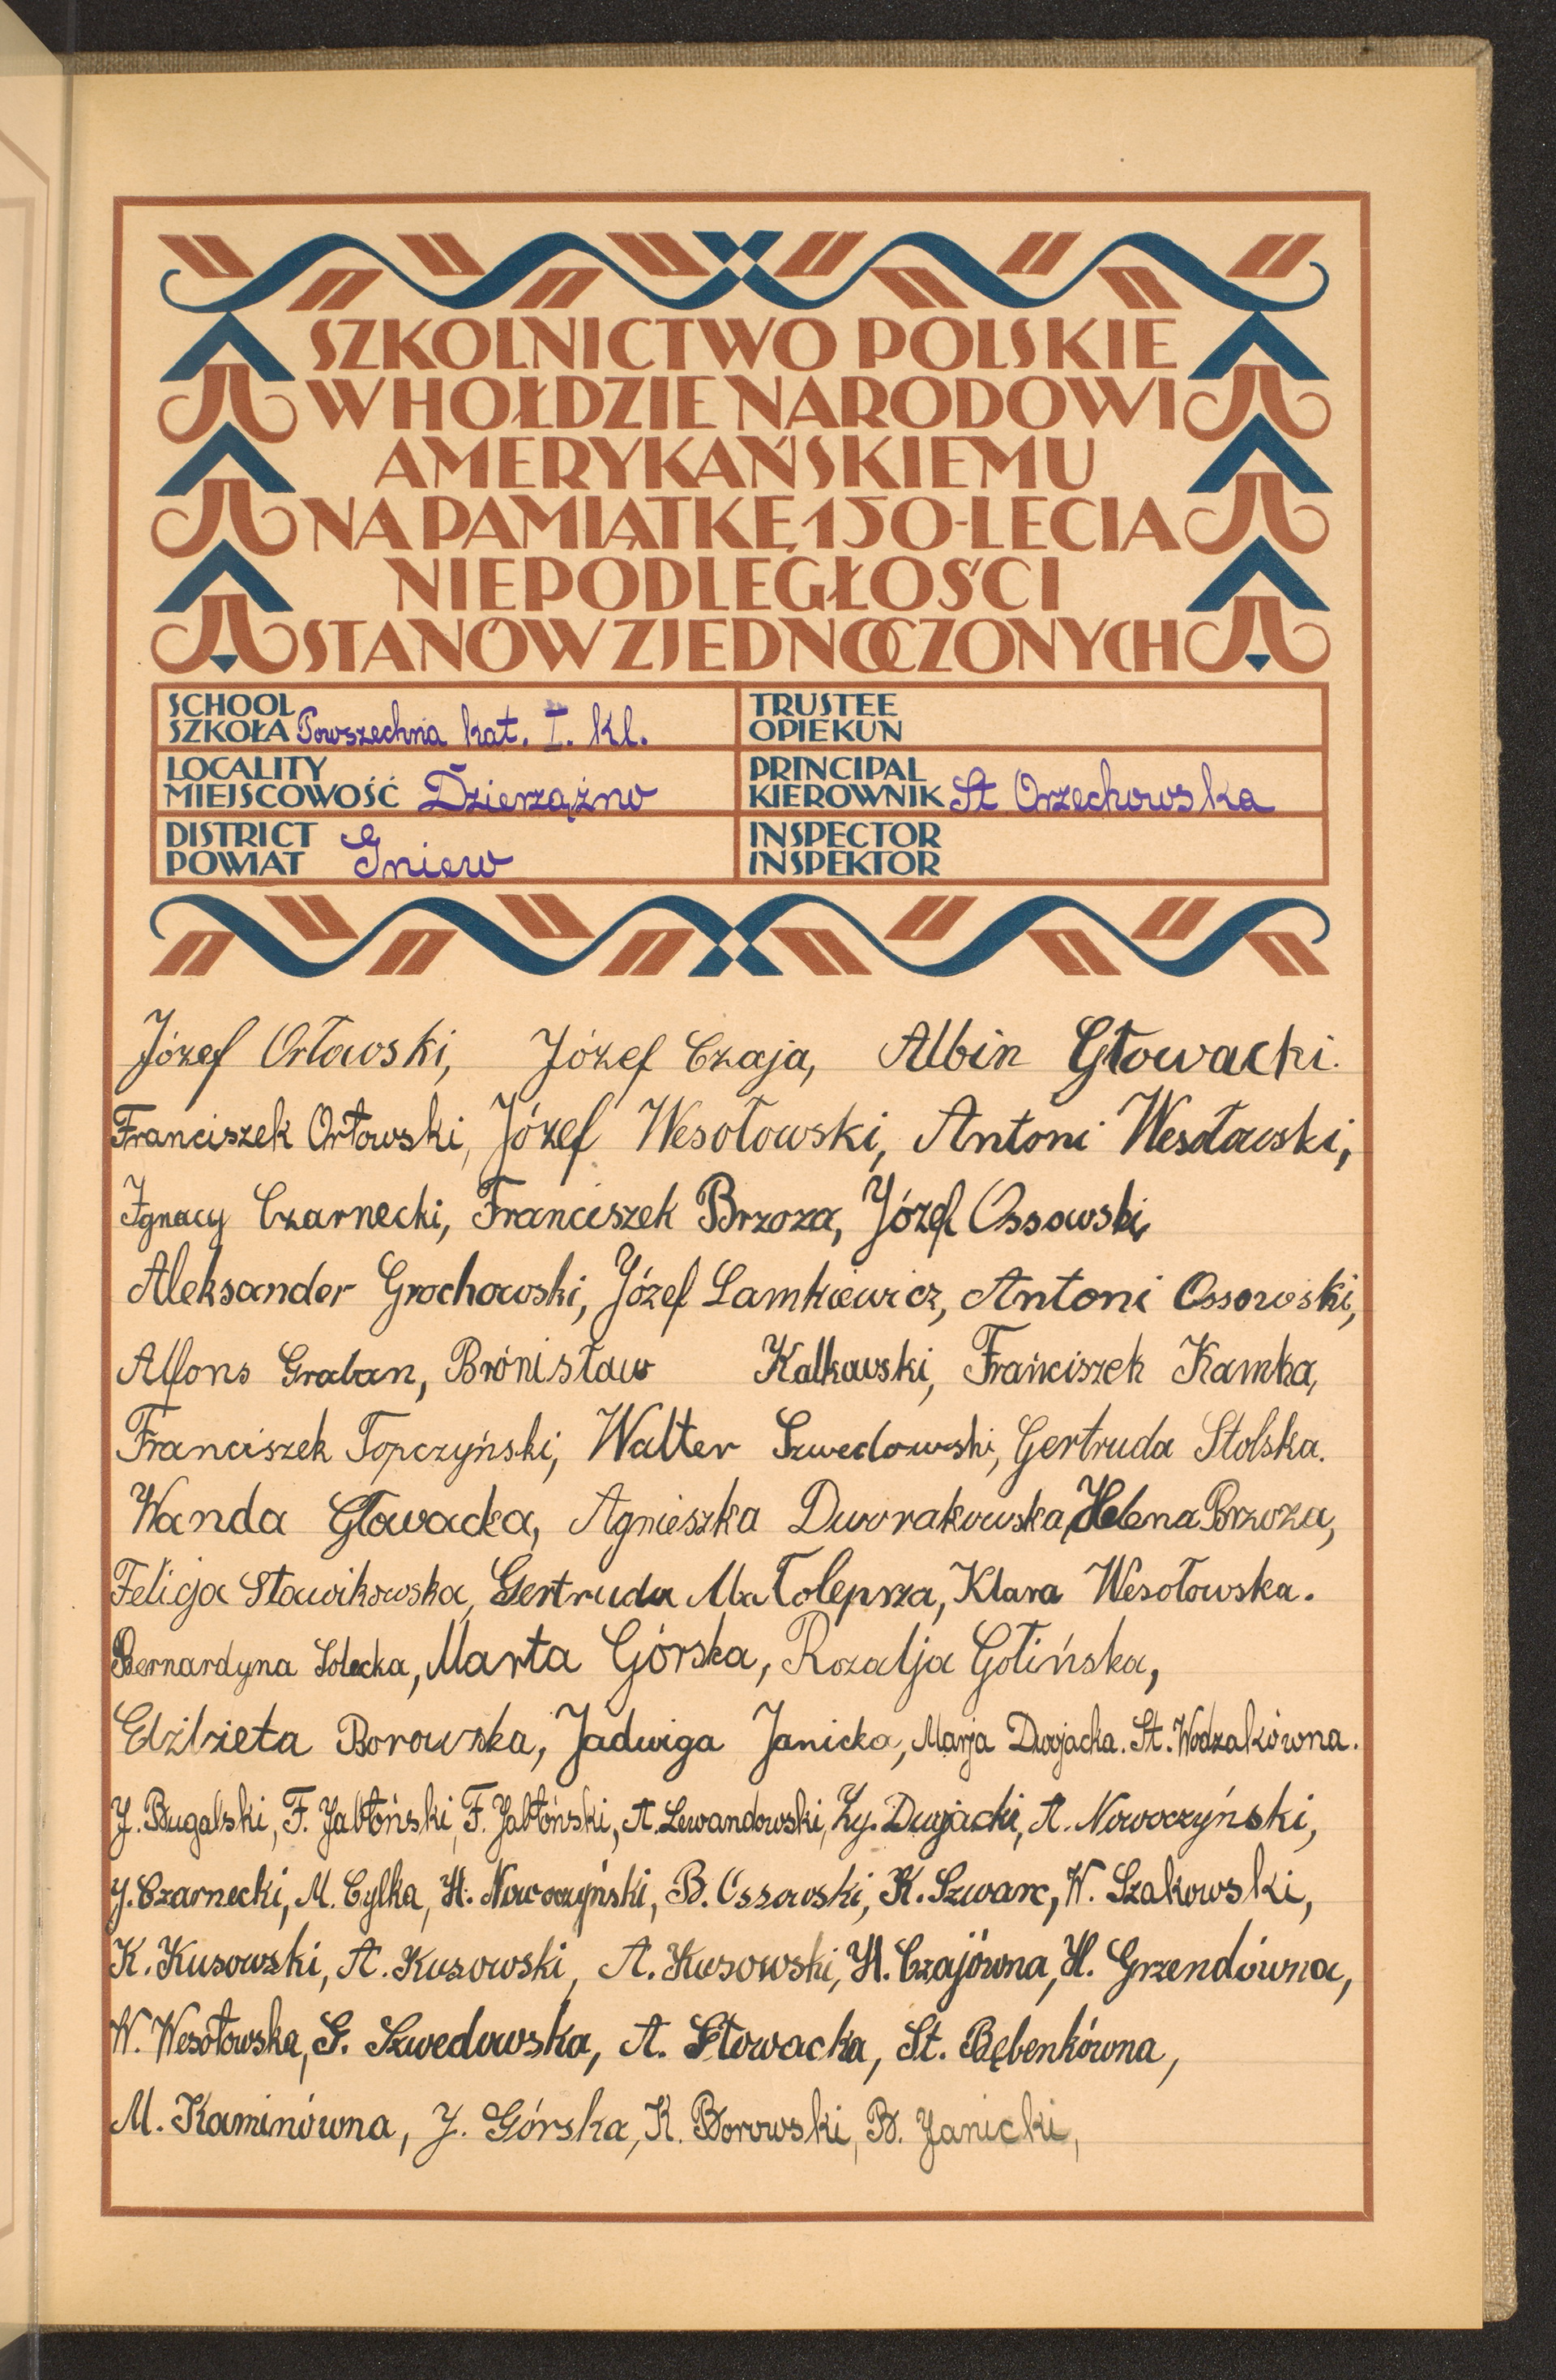 SZKOLNICTWO POLSKIE
W HOŁDZIE NARODOWI
AMERYKAŃSKIEMU
NA PAMIĄTKĘ 150-LECIA
NIEPODLEGŁOŚCI
STANÓW ZJEDNOCZONYCH
SCHOOL
SZKOŁA Powszechna kat. I. kl.
TRUSTEE
OPIEKUN
LOCALITY
MIEJSCOWOŚĆ Dzierzążno
PRINCIPAL
KIEROWNIK St Orzechowska
DISTRICT
POWIAT Gniew
INSPECTOR
INSPEKTOR
Józef Orłowski, Józef Czaja, Albin Głowacki.
Franciszek Orłowski, Józef Wesołowski, Antoni Wesołowski,
Ignacy Czarnecki, Franciszek Brzoza, Józef Ossowski,
Aleksander Grochowski, Józef Lamkiewicz, Antoni Ossowski,
Alfons Graban, Brónisław Kalkowski, Franciszek Kamka,
Franciszek Topczyński, Walter Szwedowski, Gertruda Stolska.
Wanda Głowacka, Agnieszka Dworakowska, Helena Brzoza,
Felicja Sławikowska, Gertruda Małolepsza, Klara Wesołowska.
Bernardyna Solecka, Marta Górska, Rozalja Golińska,
Elżbieta Borowska, Jadwiga Janicka, Marja Dwojacka. St. Wodzakówna.
J. Bugalski, F. Jabłoński, F. Jabłoński, A. Lewandowski, Zy. Dwojacki, A. Nowoczyński,
J. Czarnecki, M. Cylka, H. Nowoczyński, B. Ossowski, K. Szwarc, W. Szakowski,
K. Kusowski, A. Kusowski, A. Kusowski, H. Czajówna, H. Grzendówna,
W. Wesołowska, G. Szwedowska, A. Głowacka, St. Bębenkówna,
M. Kaminówna, J. Górska, K. Borowski, B. Janicki,